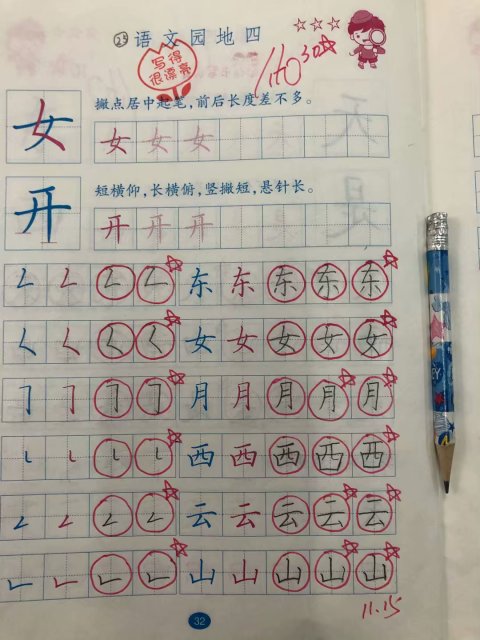 23 语文园地四
写得
很漂亮
100 30☆
女 撇点居中起笔,前后长度差不多。
女 女 女
开 短横仰,长横俯,竖撇短,悬针长。
开 开 开
𠃋 𠃋 𠃋 𠃋 东 东 东 东 东
𡿨 𡿨 𡿨 𡿨 女 女 女 女 女
𠃌 𠃌 𠃌 𠃌 月 月 月 月 月
㇄ ㇄ ㇄ ㇄ 西 西 西 西 西
𠃋 𠃋 𠃋 𠃋 云 云 云 云 云
𠃊 𠃊 𠃊 𠃊 山 山 山 山 山
11.15
32